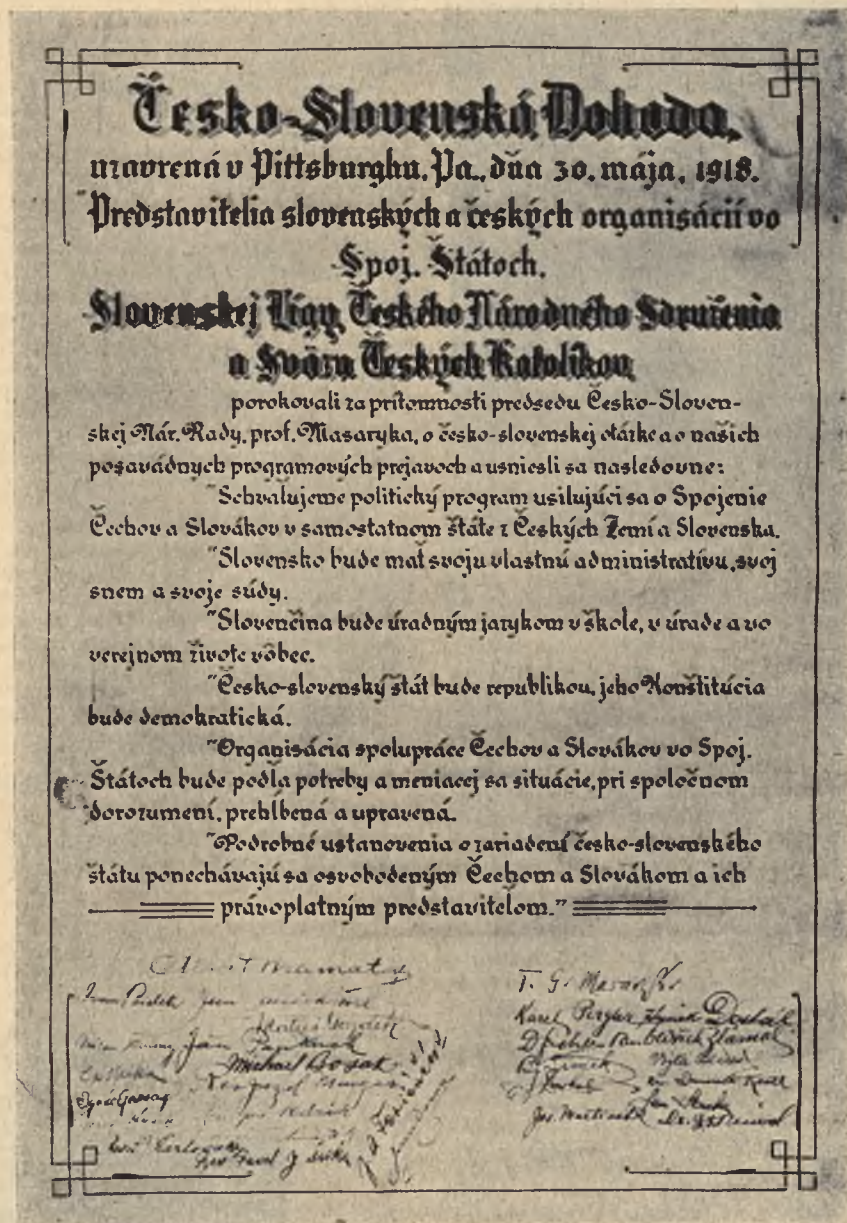 Česko-Slovenská Dohoda,
uzavrená v Pittsburghu, Pa., dňa 30. mája, 1918.
Predstavitelia slovenských a českých organisácií vo
Spoj. Štátoch,
Slovenskej Ligy, Českého Národného Sdruženia
a Sväzu Českých Katolíkov
porokovali za prítomnosti predsedu Česko-Sloven-
skej Nár. Rady, prof. Masaryka, o česko-slovenskej otázke a o našich
posavádnych programových prejavoch a usniesli sa nasledovne:
"Schvaľujeme politický program usilujúci sa o Spojenie
Čechov a Slovákov v samostatnom štáte z Českých Zemí a Slovenska.
"Slovensko bude mať svoju vlastnú administratívu, svoj
snem a svoje súdy.
"Slovenčina bude úradným jazykom v škole, v úrade a vo
verejnom živote vôbec.
"Česko-slovenský štát bude republikou, jeho Konštitúcia
bude demokratická.
"Organisácia spolupráce Čechov a Slovákov vo Spoj.
Štátoch bude podľa potreby a meniacej sa situácie, pri spoločnom
dorozumení, prehĺbená a upravená.
"Podrobné ustanovenia o zariadení česko-slovenského
štátu ponechávajú sa osvobodeným Čechom a Slovákom a ich
právoplatným predstaviteľom."
Mamatey
T. G. Masaryk
Karel Pergler
Michael Bosak